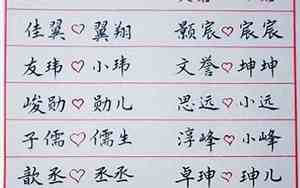 佳翼♡翼翔 颢宸♡宸宸
友玮♡小玮 文誉♡坤坤
峻勋♡勋儿 思远♡小远
子儒♡儒生 淳峰♡小峰
歆丞♡丞丞 卓珅♡珅儿